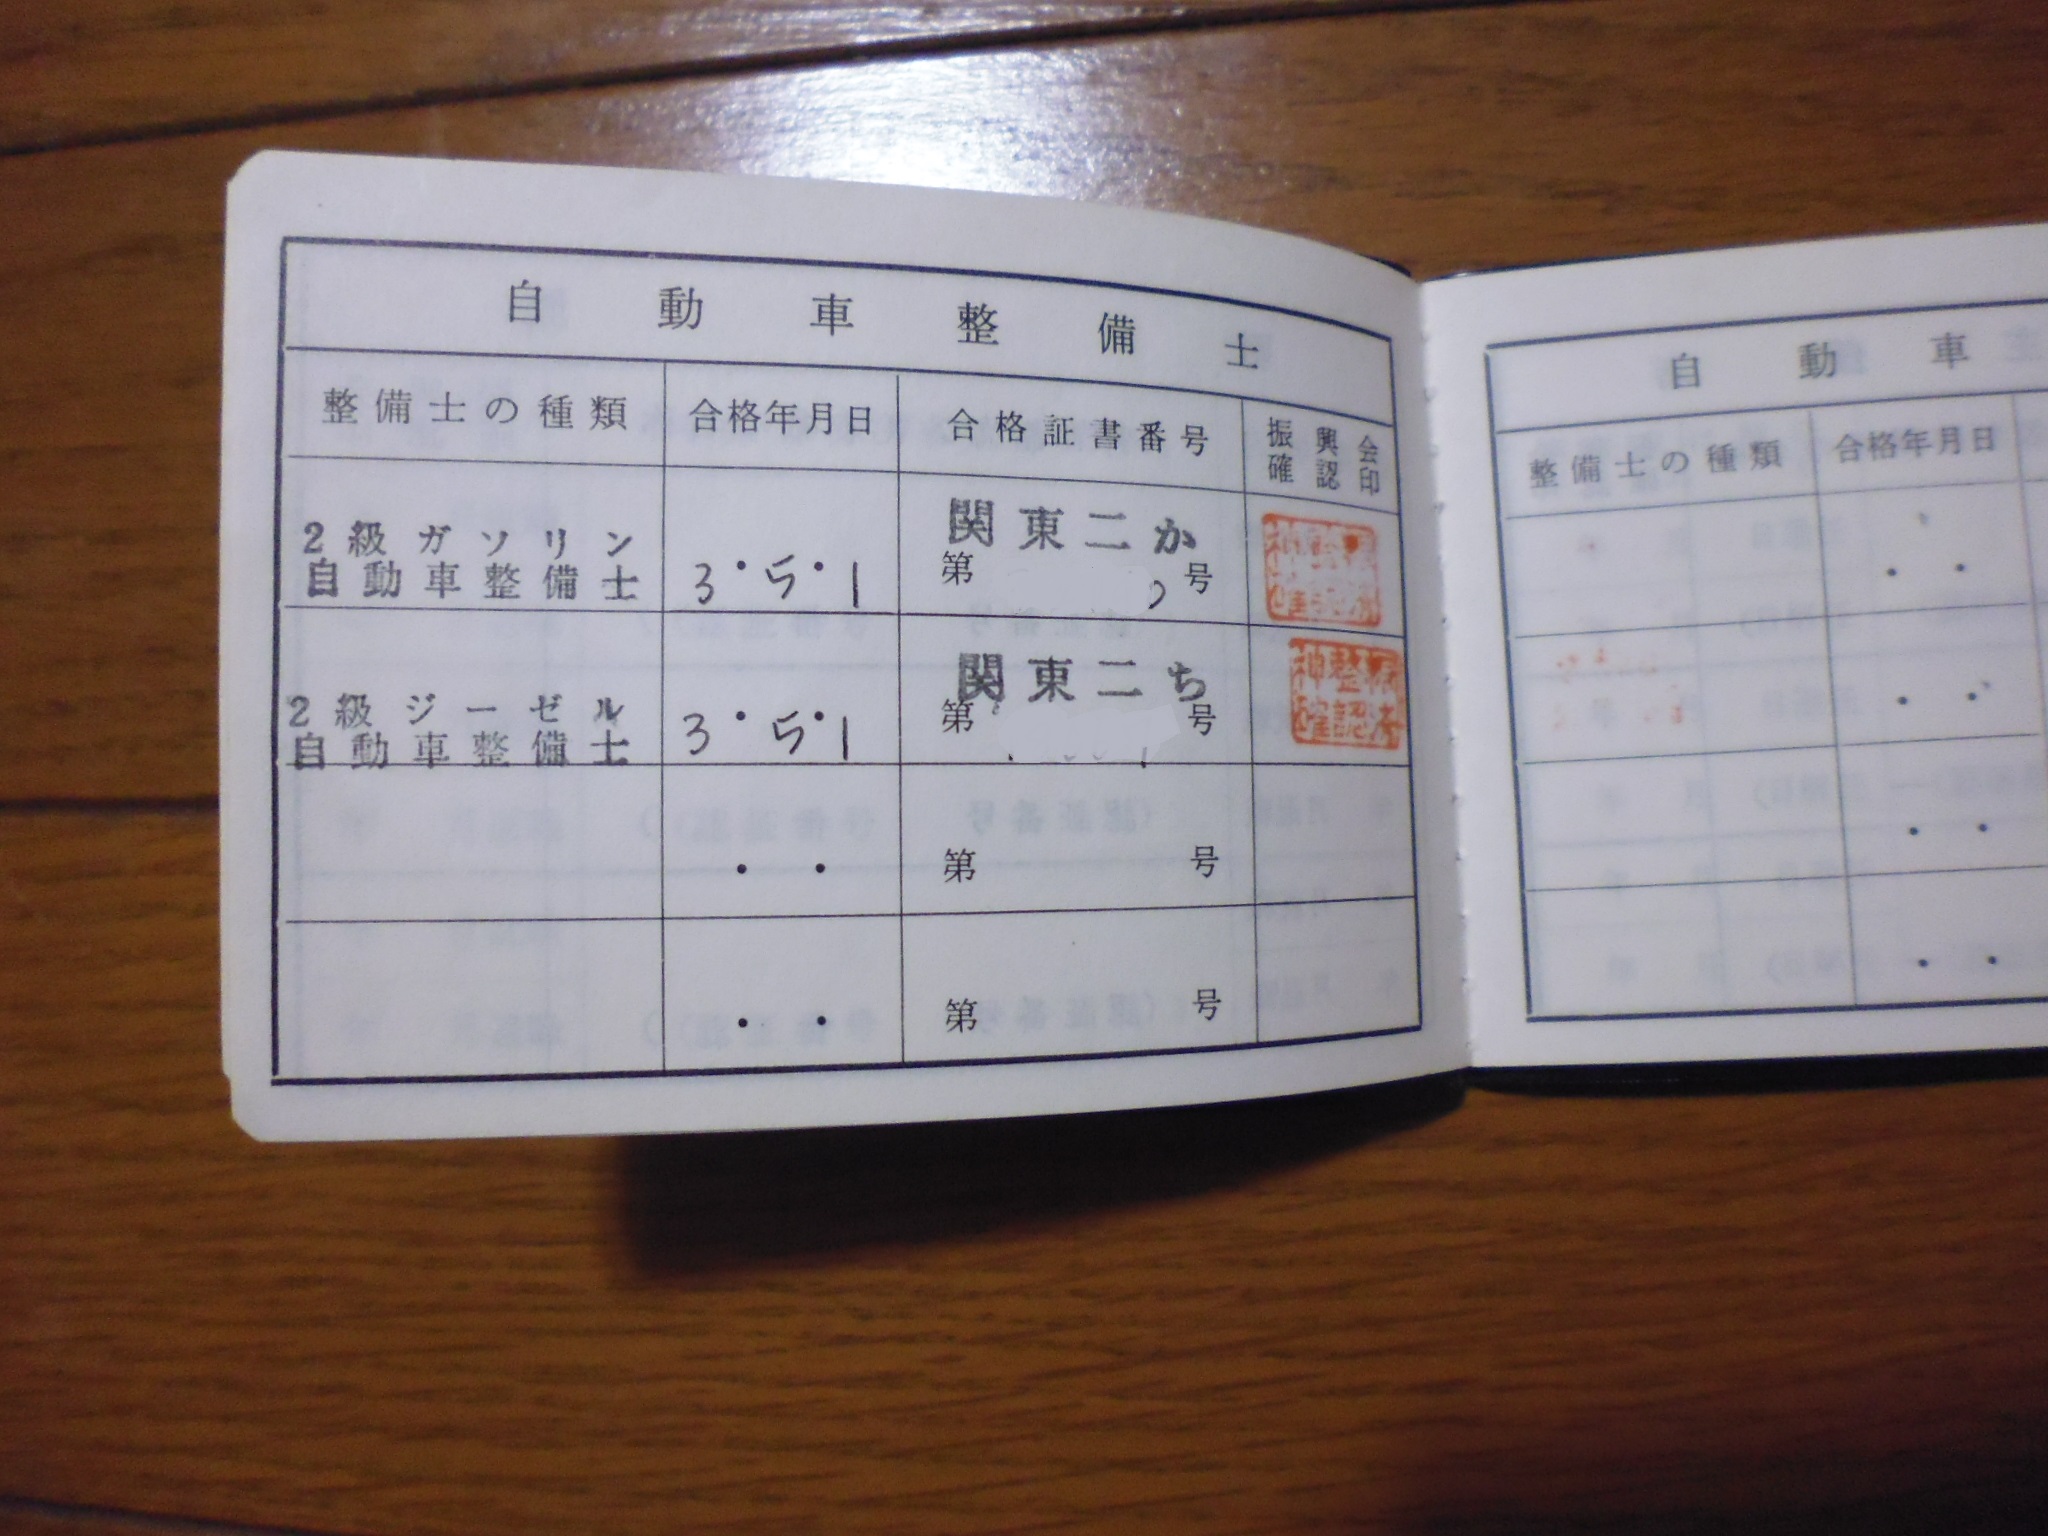 自動車整備士
整備士の種類 合格年月日 合格証書番号 振興会確認印
2級ガソリン
自動車整備士 3・5・1 関東二か
第 号
2級ジーゼル
自動車整備士 3・5・1 関東二ち
第 号
・ ・ 第 号
・ ・ 第 号
自動車
整備士の種類 合格年月日